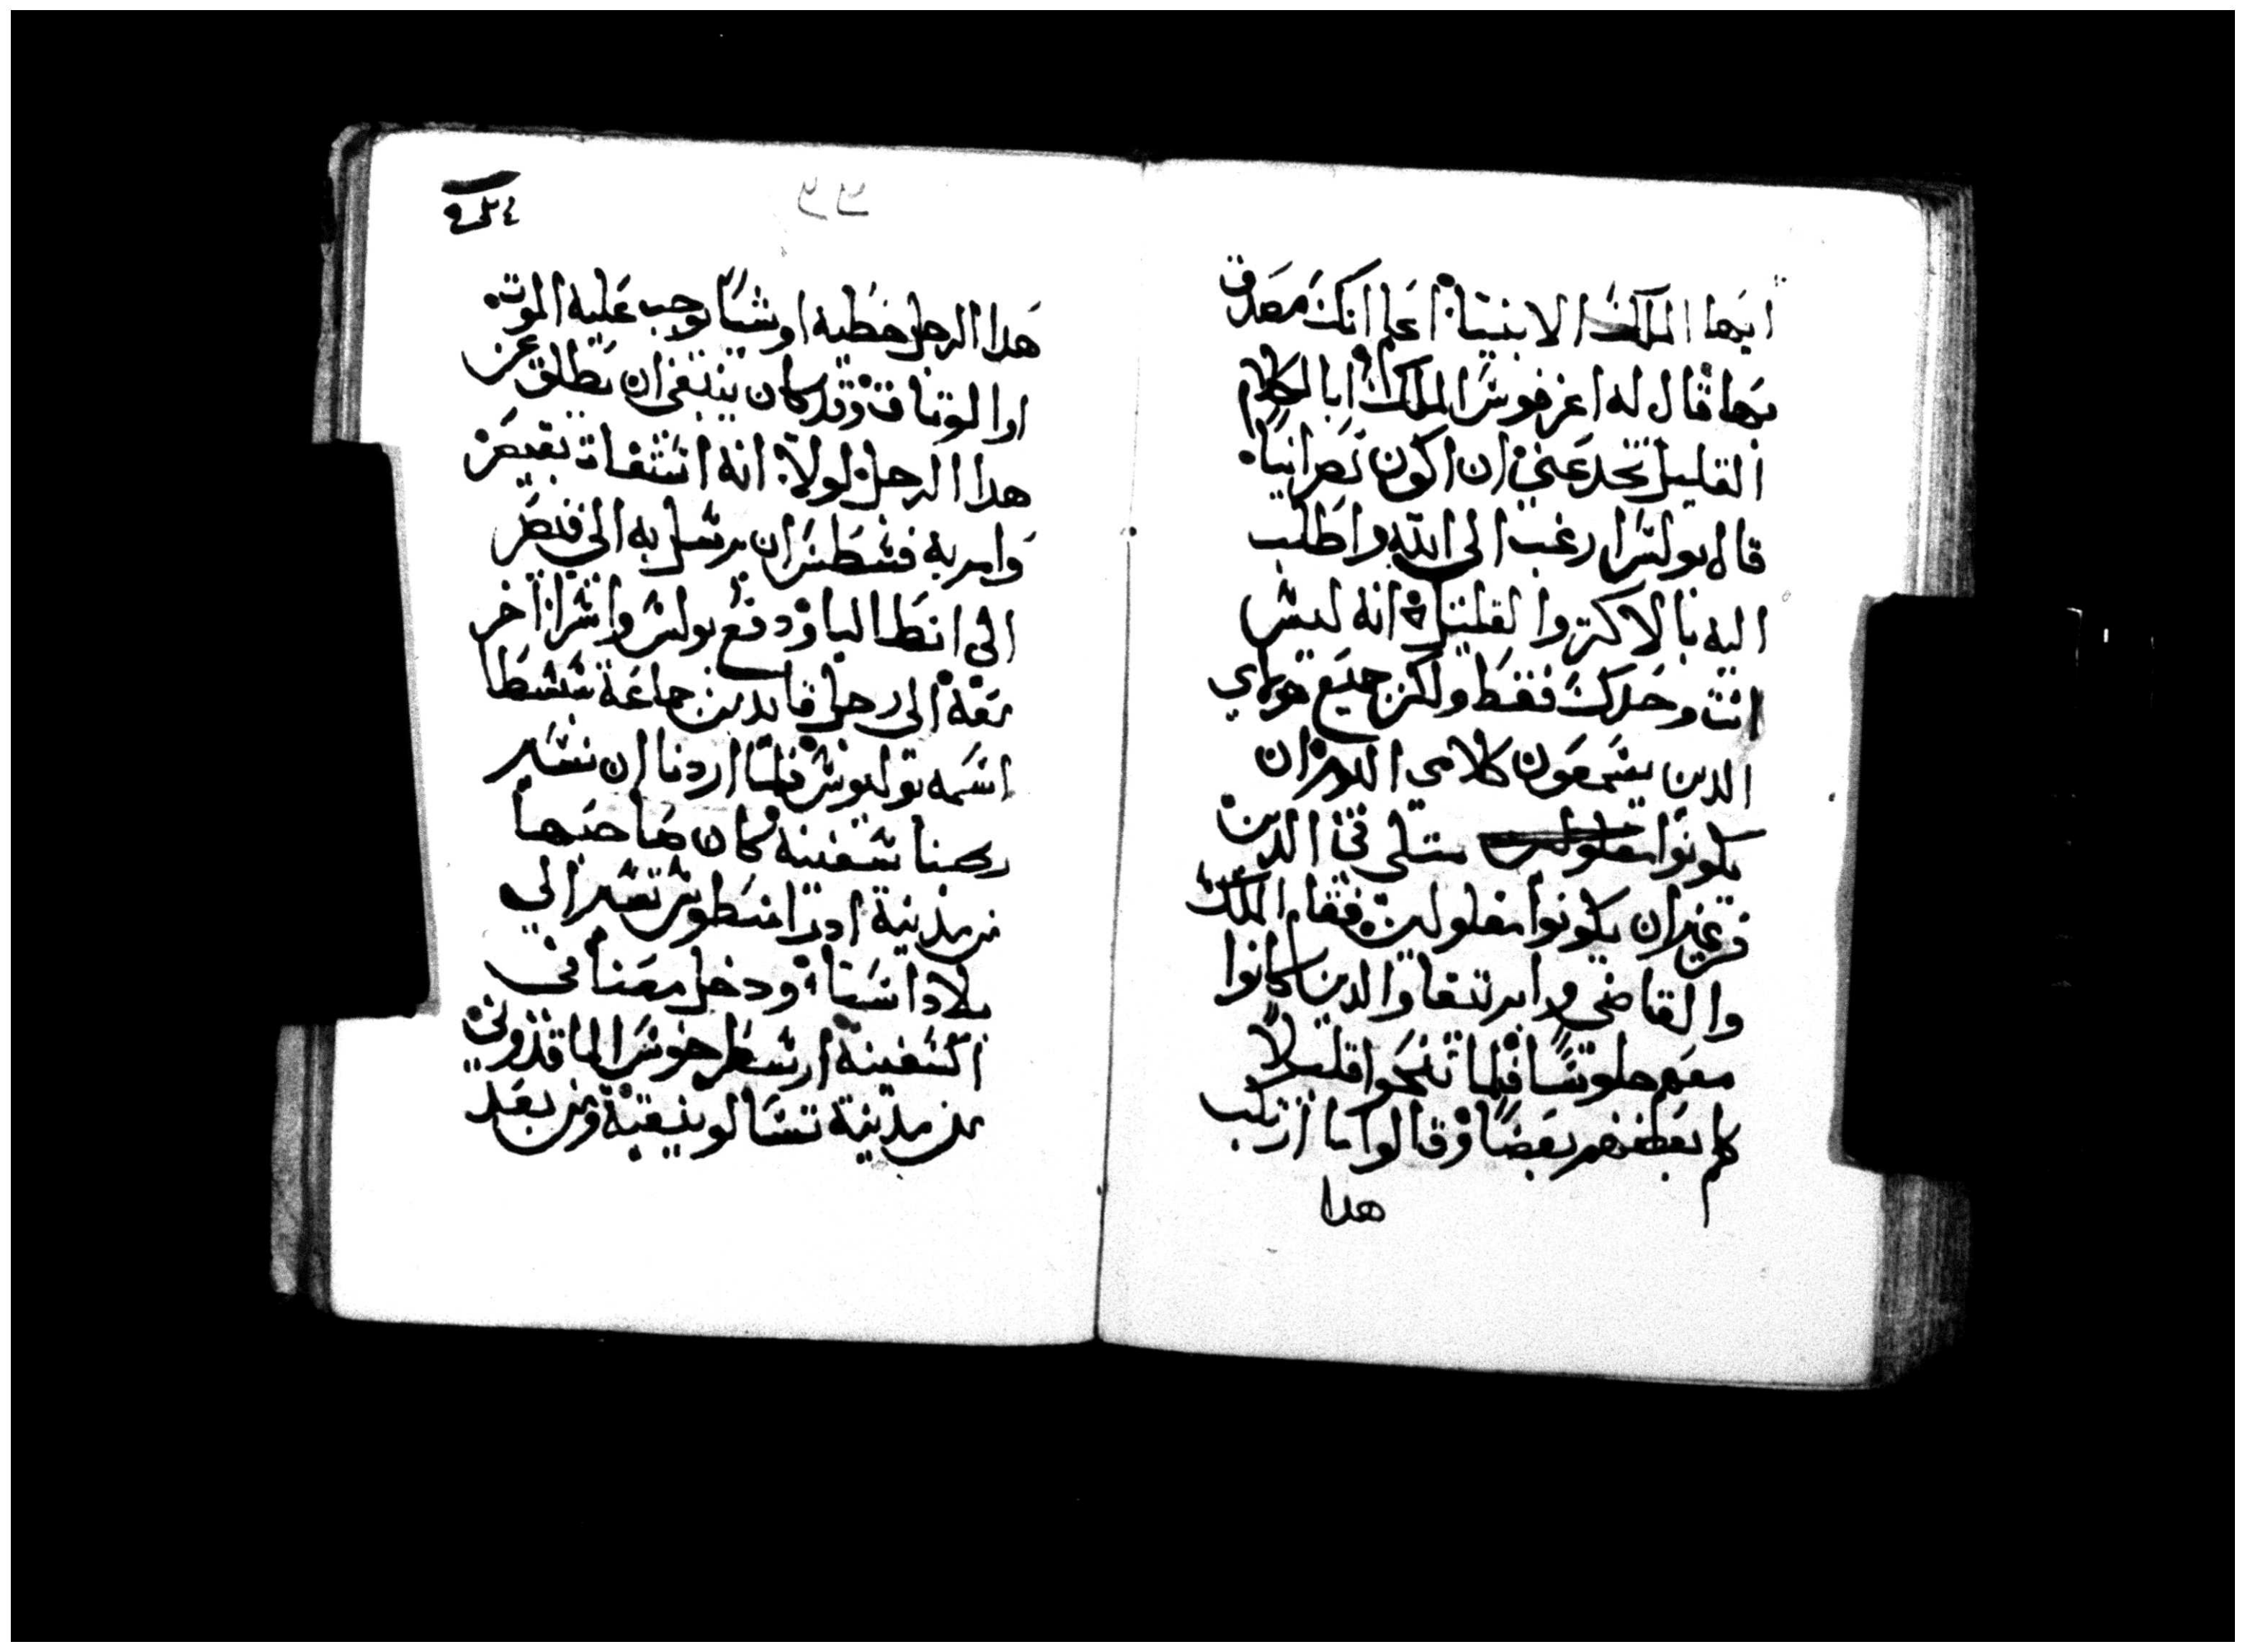 ايها الملك الانبيا اعلم انك مصدق
بها قال له اغرفوس الملك ابا الكلام
القليل تخدعني ان اكون نصرانيا
قال بولس ارغب الى الله واطلب
اليه بالاكثر والقليل انه ليس
انت وحدك فقط ولكن جميع هولاي
الدين يسمعون كلامى اليوم ان
يكونوا متلي في الدين
من غير ان يكونوا مغلولين فقام الملك
والقاضي وابرنيقا والدين كانوا
معهم جلوسا فلما تنحوا قليلا
كلم بعضهم بعضا وقالوا ما ارتكب
هدا
هدا الرجل خطية او شيا يوجب عليه الموت
او الوتاق وقد كان ينبغي ان يطلق عن
هدا الرجل لولا انه استغات بقيصر
وامر به فسطس ان يرسل به الى قيصر
الى انطاليا ودفع بولس واسرا اخر
معه الى رجل قايد من جماعة سبسطا
اسمه يوليوس فلما اردنا ان نسير
ركبنا سفينة كان صاحبها
من مدينة ادراسطوس تسير الي
بلاد اسيا ودخل معنا في
السفينة ارسطرخوس الماقدوني
من مدينة تسالونيقية ومن بعد